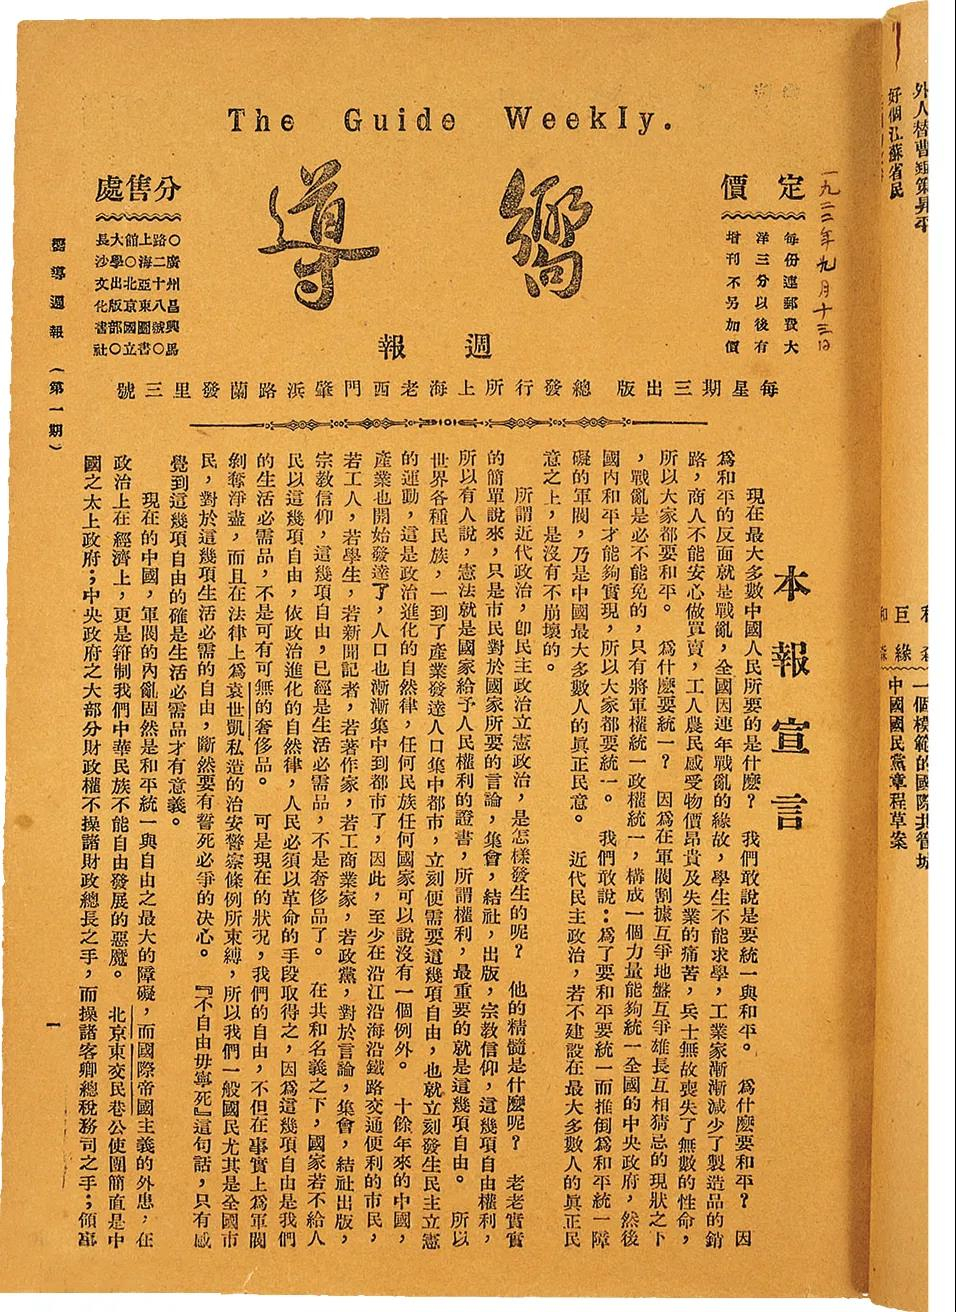 The Guide Weekly.
嚮導
週報
定價
每份連郵費大
洋三分以後有
增刊不另加價
一九二二年九月十三日
分售處
〇廣州昌興馬
路二十八號〇
上海亞東圖書
館〇北京國立
大學出版部〇
長沙文化書社
每星期三出版 總發行所上海老西門肇浜路蘭發里三號
本報宣言
現在最大多數中國人民所要的是什麽？ 我們敢說是要統一與和平。 爲什麽要和平？ 因
爲和平的反面就是戰亂，全國因連年戰亂的緣故，學生不能求學，工業家漸漸減少了製造品的銷
路，商人不能安心做買賣，工人農民感受物價昂貴及失業的痛苦，兵士無故喪失了無數的性命，
所以大家都要和平。 爲什麽要統一？ 因爲在軍閥割據互爭地盤互爭雄長互相猜忌的現狀之下
，戰亂是必不能免的，只有將軍權統一政權統一，構成一個力量能夠統一全國的中央政府，然後
國內和平才能夠實現，所以大家都要統一。 我們敢說：爲了要和平要統一而推倒爲和平統一障
礙的軍閥，乃是中國最大多數人的眞正民意。 近代民主政治，若不建設在最大多數人的眞正民
意之上，是沒有不崩壞的。
所謂近代政治，卽民主政治立憲政治，是怎樣發生的呢？ 他的精髓是什麽呢？ 老老實實
的簡單說來，只是市民對於國家所要的言論，集會，結社，出版，宗教信仰，這幾項自由權利，
所以有人說，憲法就是國家給予人民權利的證書，所謂權利，最重要的就是這幾項自由。 所以
世界各種民族，一到了產業發達人口集中都市，立刻便需要這幾項自由，也就立刻發生民主立憲
的運動，這是政治進化的自然律，任何民族任何國家可以說沒有一個例外。 十餘年來的中國，
產業也開始發達了，人口也漸漸集中到都市了，因此，至少在沿江沿海沿鐵路交通便利的市民，
若工人，若學生，若新聞記者，若著作家，若工商業家，若政黨，對於言論，集會，結社出版，
宗教信仰，這幾項自由，已經是生活必需品，不是奢侈品了。 在共和名義之下，國家若不給人
民以這幾項自由，依政治進化的自然律，人民必須以革命的手段取得之，因爲這幾項自由是我們
的生活必需品，不是可有可無的奢侈品。 可是現在的狀況，我們的自由，不但在事實上爲軍閥
剝奪淨盡，而且在法律上爲袁世凱私造的治安警察條例所束縛，所以我們一般國民尤其是全國市
民，對於這幾項生活必需的自由，斷然要有誓死必爭的決心。 『不自由毋寧死』這句話，只有感
覺到這幾項自由的確是生活必需品才有意義。
現在的中國，軍閥的內亂固然是和平統一與自由之最大的障礙，而國際帝國主義的外患，在
政治上在經濟上，更是箝制我們中華民族不能自由發展的惡魔。 北京東交民巷公使團簡直是中
國之太上政府；中央政府之大部分財政權不操諸財政總長之手，而操諸客卿總稅務司之手；領事
嚮導週報 （第一期）
一
外人替曹錕策昇平
好個江蘇省民
巨緣
和
一個模範的國際共管城
中國國民黨章程草案